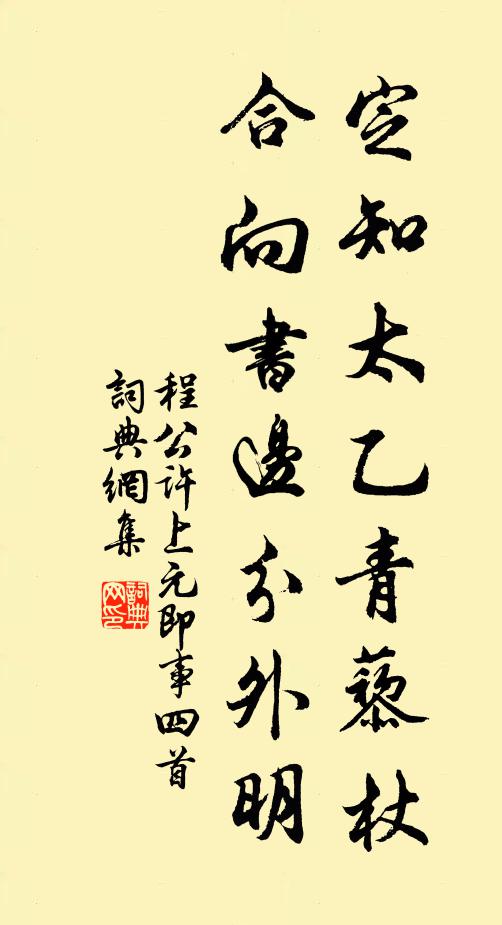 定知太乙青藜杖
合向書邊分外明
程公許上元即事四首
詞典網集
詞典網印